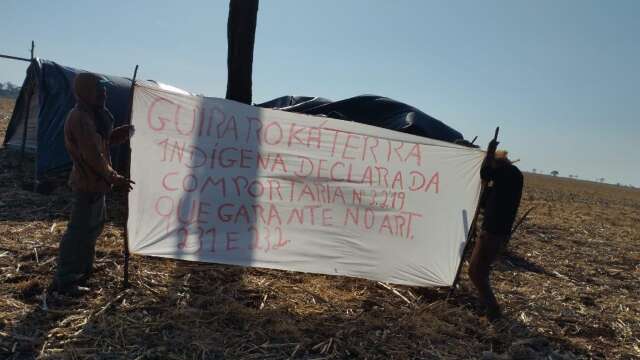 GUIRA ROKÁ TERRA
INDÍGENA DECLARADA
COM PORTARIA N 2.219
QUE GARANTE NO ART.
231 E 232.